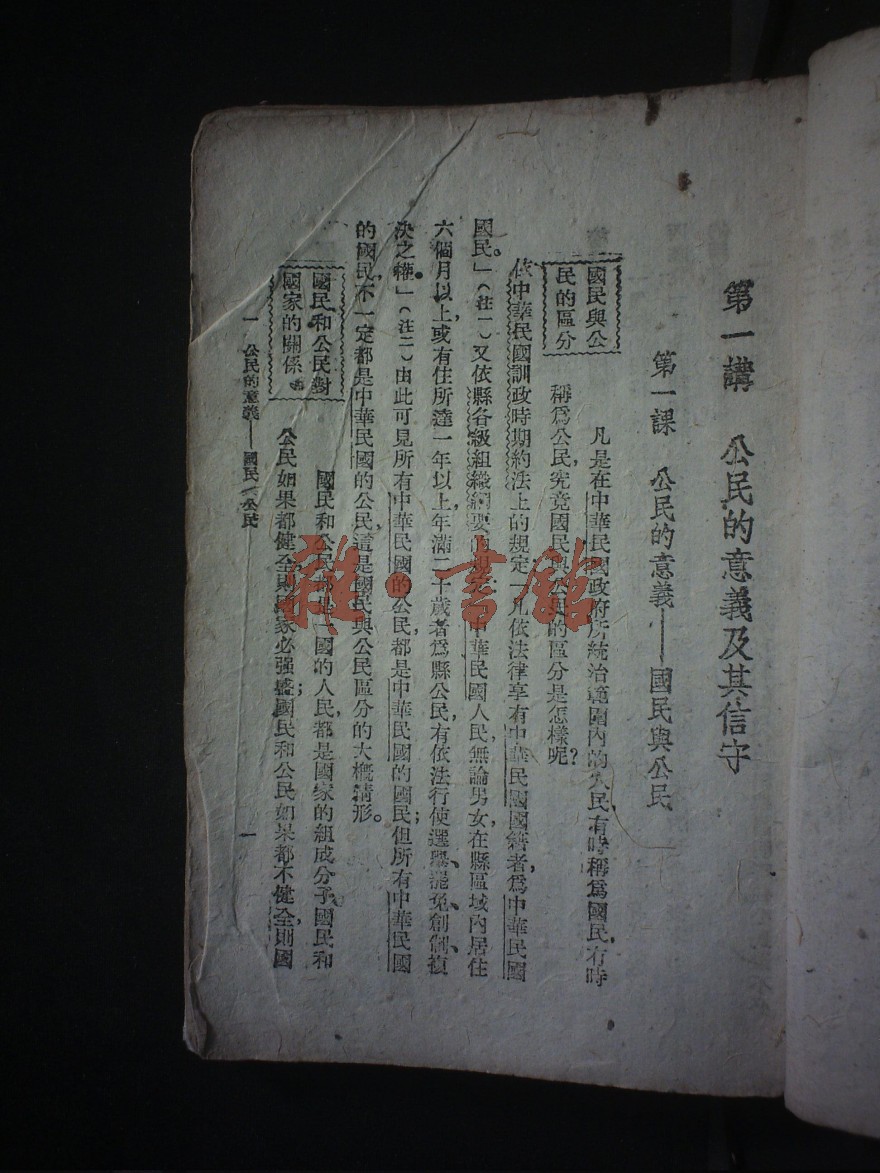 第一講　公民的意義及其信守
第一課　公民的意義——國民與公民
國民與公
民的區分
凡是在中華民國政府所統治範圍內的人民,有時稱爲國民,有時
稱爲公民,究竟國民與公民的區分是怎樣呢?
依中華民國訓政時期約法上的規定「凡依法律享有中華民國國籍者,爲中華民國
國民。」(註一)又依縣各級組織綱要內規定「中華民國人民,無論男女,在縣區域內居住
六個月以上,或有住所達一年以上,年滿二十歲者爲縣公民,有依法行使選舉、罷免、創制、複
決之權。」(註二)由此可見所有中華民國的公民,都是中華民國的國民;但所有中華民國
的國民,不一定都是中華民國的公民,這是國民與公民區分的大概情形。
國民和公民對
國家的關係
國民和公民都是一國的人民,都是國家的組成分子,國民和
公民如果都健全,則國家必强盛;國民和公民如果都不健全,則國
一　公民的意義——國民與公民
一
雜·書館